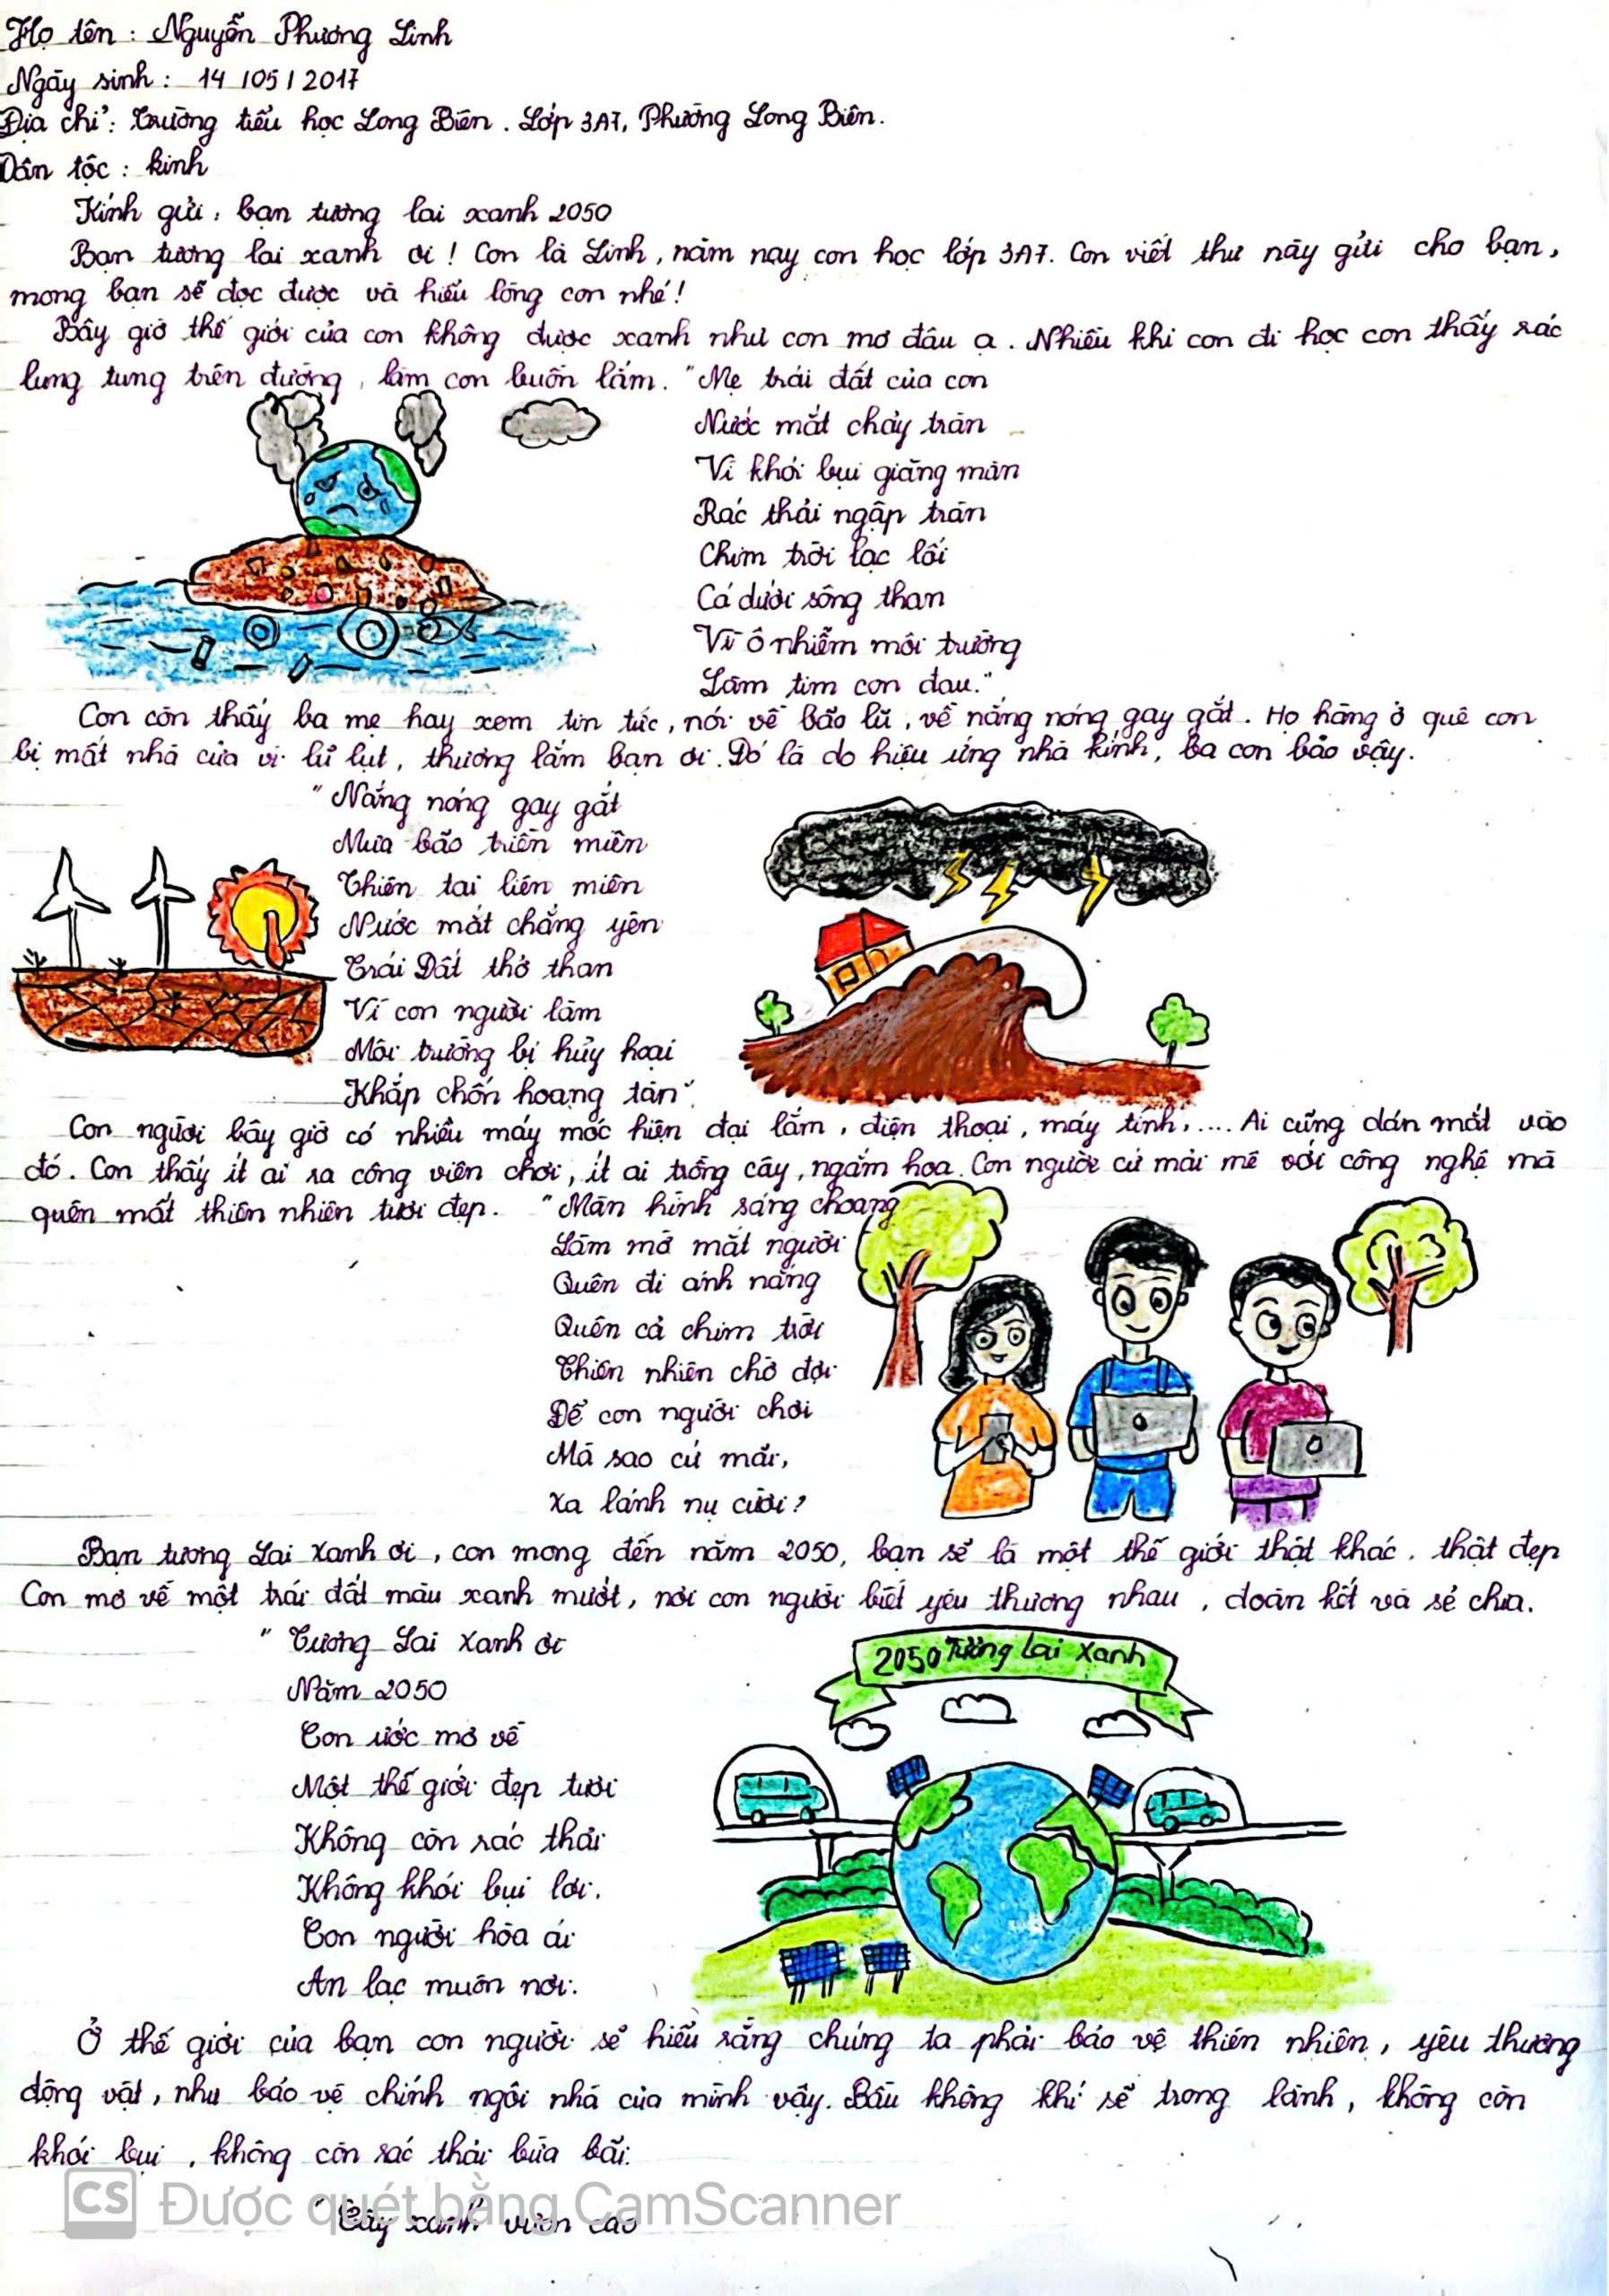 Họ tên : Nguyễn Phương Linh
Ngày sinh : 14 / 05 / 2017
Địa chỉ : Trường tiểu học Long Biên . Lớp 3A7, Phường Long Biên.
Dân tộc : kinh
Kính gửi : bạn tương lai xanh 2050
Bạn tương lai xanh ơi ! Con là Linh, năm nay con học lớp 3A7. Con viết thư này gửi cho bạn,
mong bạn sẽ đọc được và hiểu lòng con nhé !
Bây giờ thế giới của con không được xanh như con mơ đâu ạ . Nhiều khi con đi học con thấy rác
lung tung trên đường, làm con buồn lắm. "Mẹ trái đất của con
Nước mắt chảy tràn
Vì khói bụi giăng màn
Rác thải ngập tràn
Chim trời lạc lối
Cá dưới sông than
Vì ô nhiễm môi trường
Làm tim con đau."
Con còn thấy ba mẹ hay xem tin tức, nói về bão lũ, về nắng nóng gay gắt. Họ hàng ở quê con
bị mất nhà cửa vì lũ lụt, thương lắm bạn ơi. Đó là do hiệu ứng nhà kính, ba con bảo vậy.
"Nắng nóng gay gắt
Mưa bão triền miên
Thiên tai liên miên
Nước mắt chẳng yên
Trái Đất thở than
Vì con người làm
Môi trường bị hủy hoại
Khắp chốn hoang tàn".
Con người bây giờ có nhiều máy móc hiện đại lắm, điện thoại, máy tính,.... Ai cũng dán mắt vào
đó. Con thấy ít ai ra công viên chơi, ít ai trồng cây, ngắm hoa. Con người cứ mải mê với công nghệ mà
quên mất thiên nhiên tươi đẹp. "Màn hình sáng choang
Làm mờ mắt người
Quên đi ánh nắng
Quên cả chim trời
Thiên nhiên chờ đợi
Để con người chơi
Mà sao cứ mãi,
Xa lánh nụ cười ?
Bạn tương Lai Xanh ơi, con mong đến năm 2050, bạn sẽ là một thế giới thật khác, thật đẹp
Con mơ về một trái đất màu xanh mướt, nơi con người biết yêu thương nhau, đoàn kết và sẻ chia.
"Tương Lai Xanh ơi
Năm 2050
Con ước mơ về
Một thế giới đẹp tươi
Không còn rác thải
Không khói bụi lơi.
Con người hòa ái
An lạc muôn nơi.
2050 Tương lai Xanh
Ở thế giới của bạn con người sẽ hiểu rằng chúng ta phải bảo vệ thiên nhiên, yêu thương
động vật, như bảo vệ chính ngôi nhà của mình vậy. Bầu không khí sẽ trong lành, không còn
khói bụi, không còn rác thải bừa bãi.
"Cây xanh vươn cao
CS Được quét bằng CamScanner